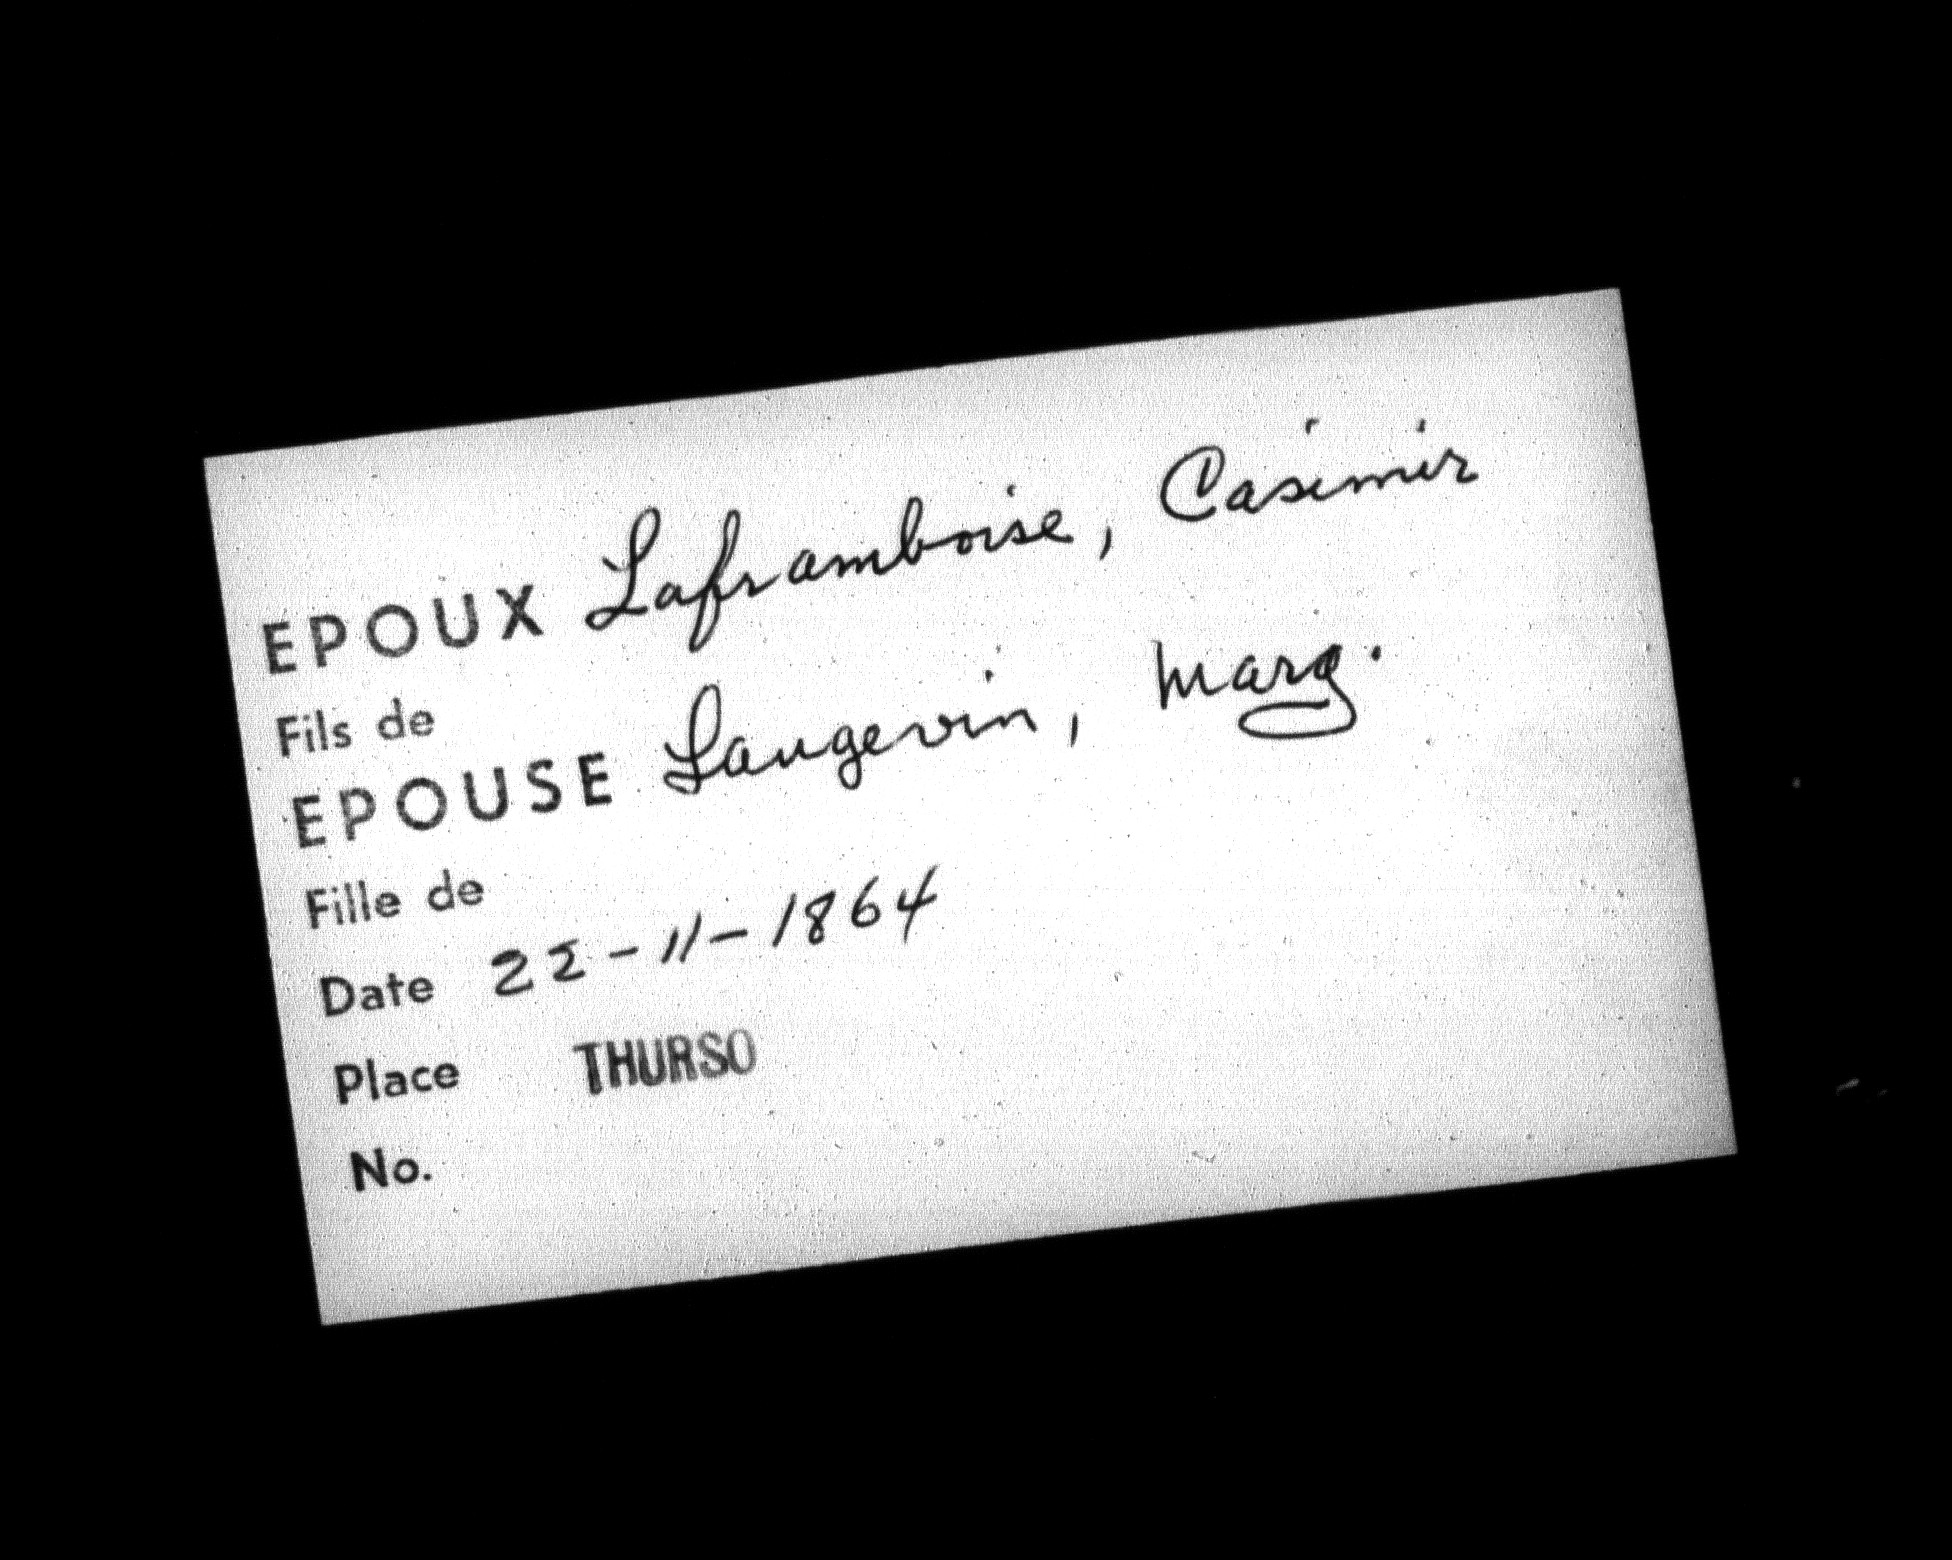 EPOUX Laframboise, Casimir
Fils de
EPOUSE Langevin, Marg.
Fille de
Date 22-11-1864
Place THURSO
No.